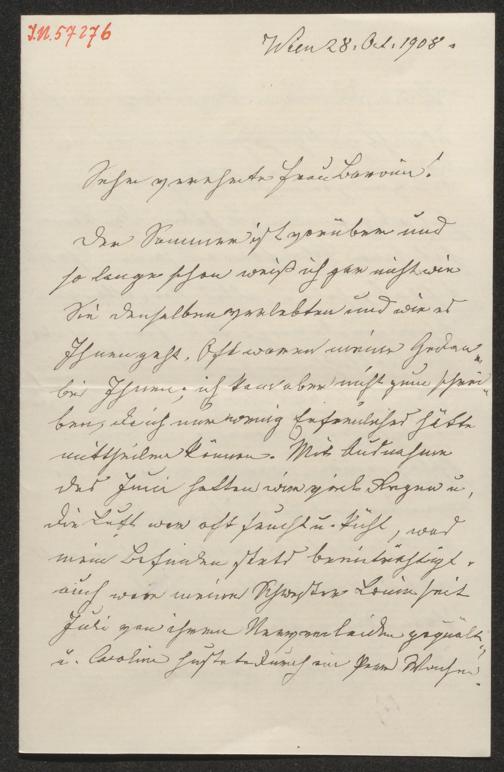 I.N. 57276
Wien 28. Oct. 1908.
Sehr verehrte Frau Baronin!
Der Sommer ist vorüber und
so lange schon weiß ich gar nicht wie
Sie denselben verlebten und wie es
Ihnen geht. Oft waren meine Gedan-
bei Ihnen; ich kam aber nicht zum schrei-
ben, da ich nur wenig Erfreuliches hätte
mittheilen können. Mit Ausnahme
des Juni hatten wir viel Regen u.
die Luft war oft feucht u. kühl, was
mein Befinden stets beeinträchtigt.
auch war meine Schwester Louise seit
Juli von ihrem Nervenleiden gequält
u. Caroline hustete durch ein Paar Wochen.